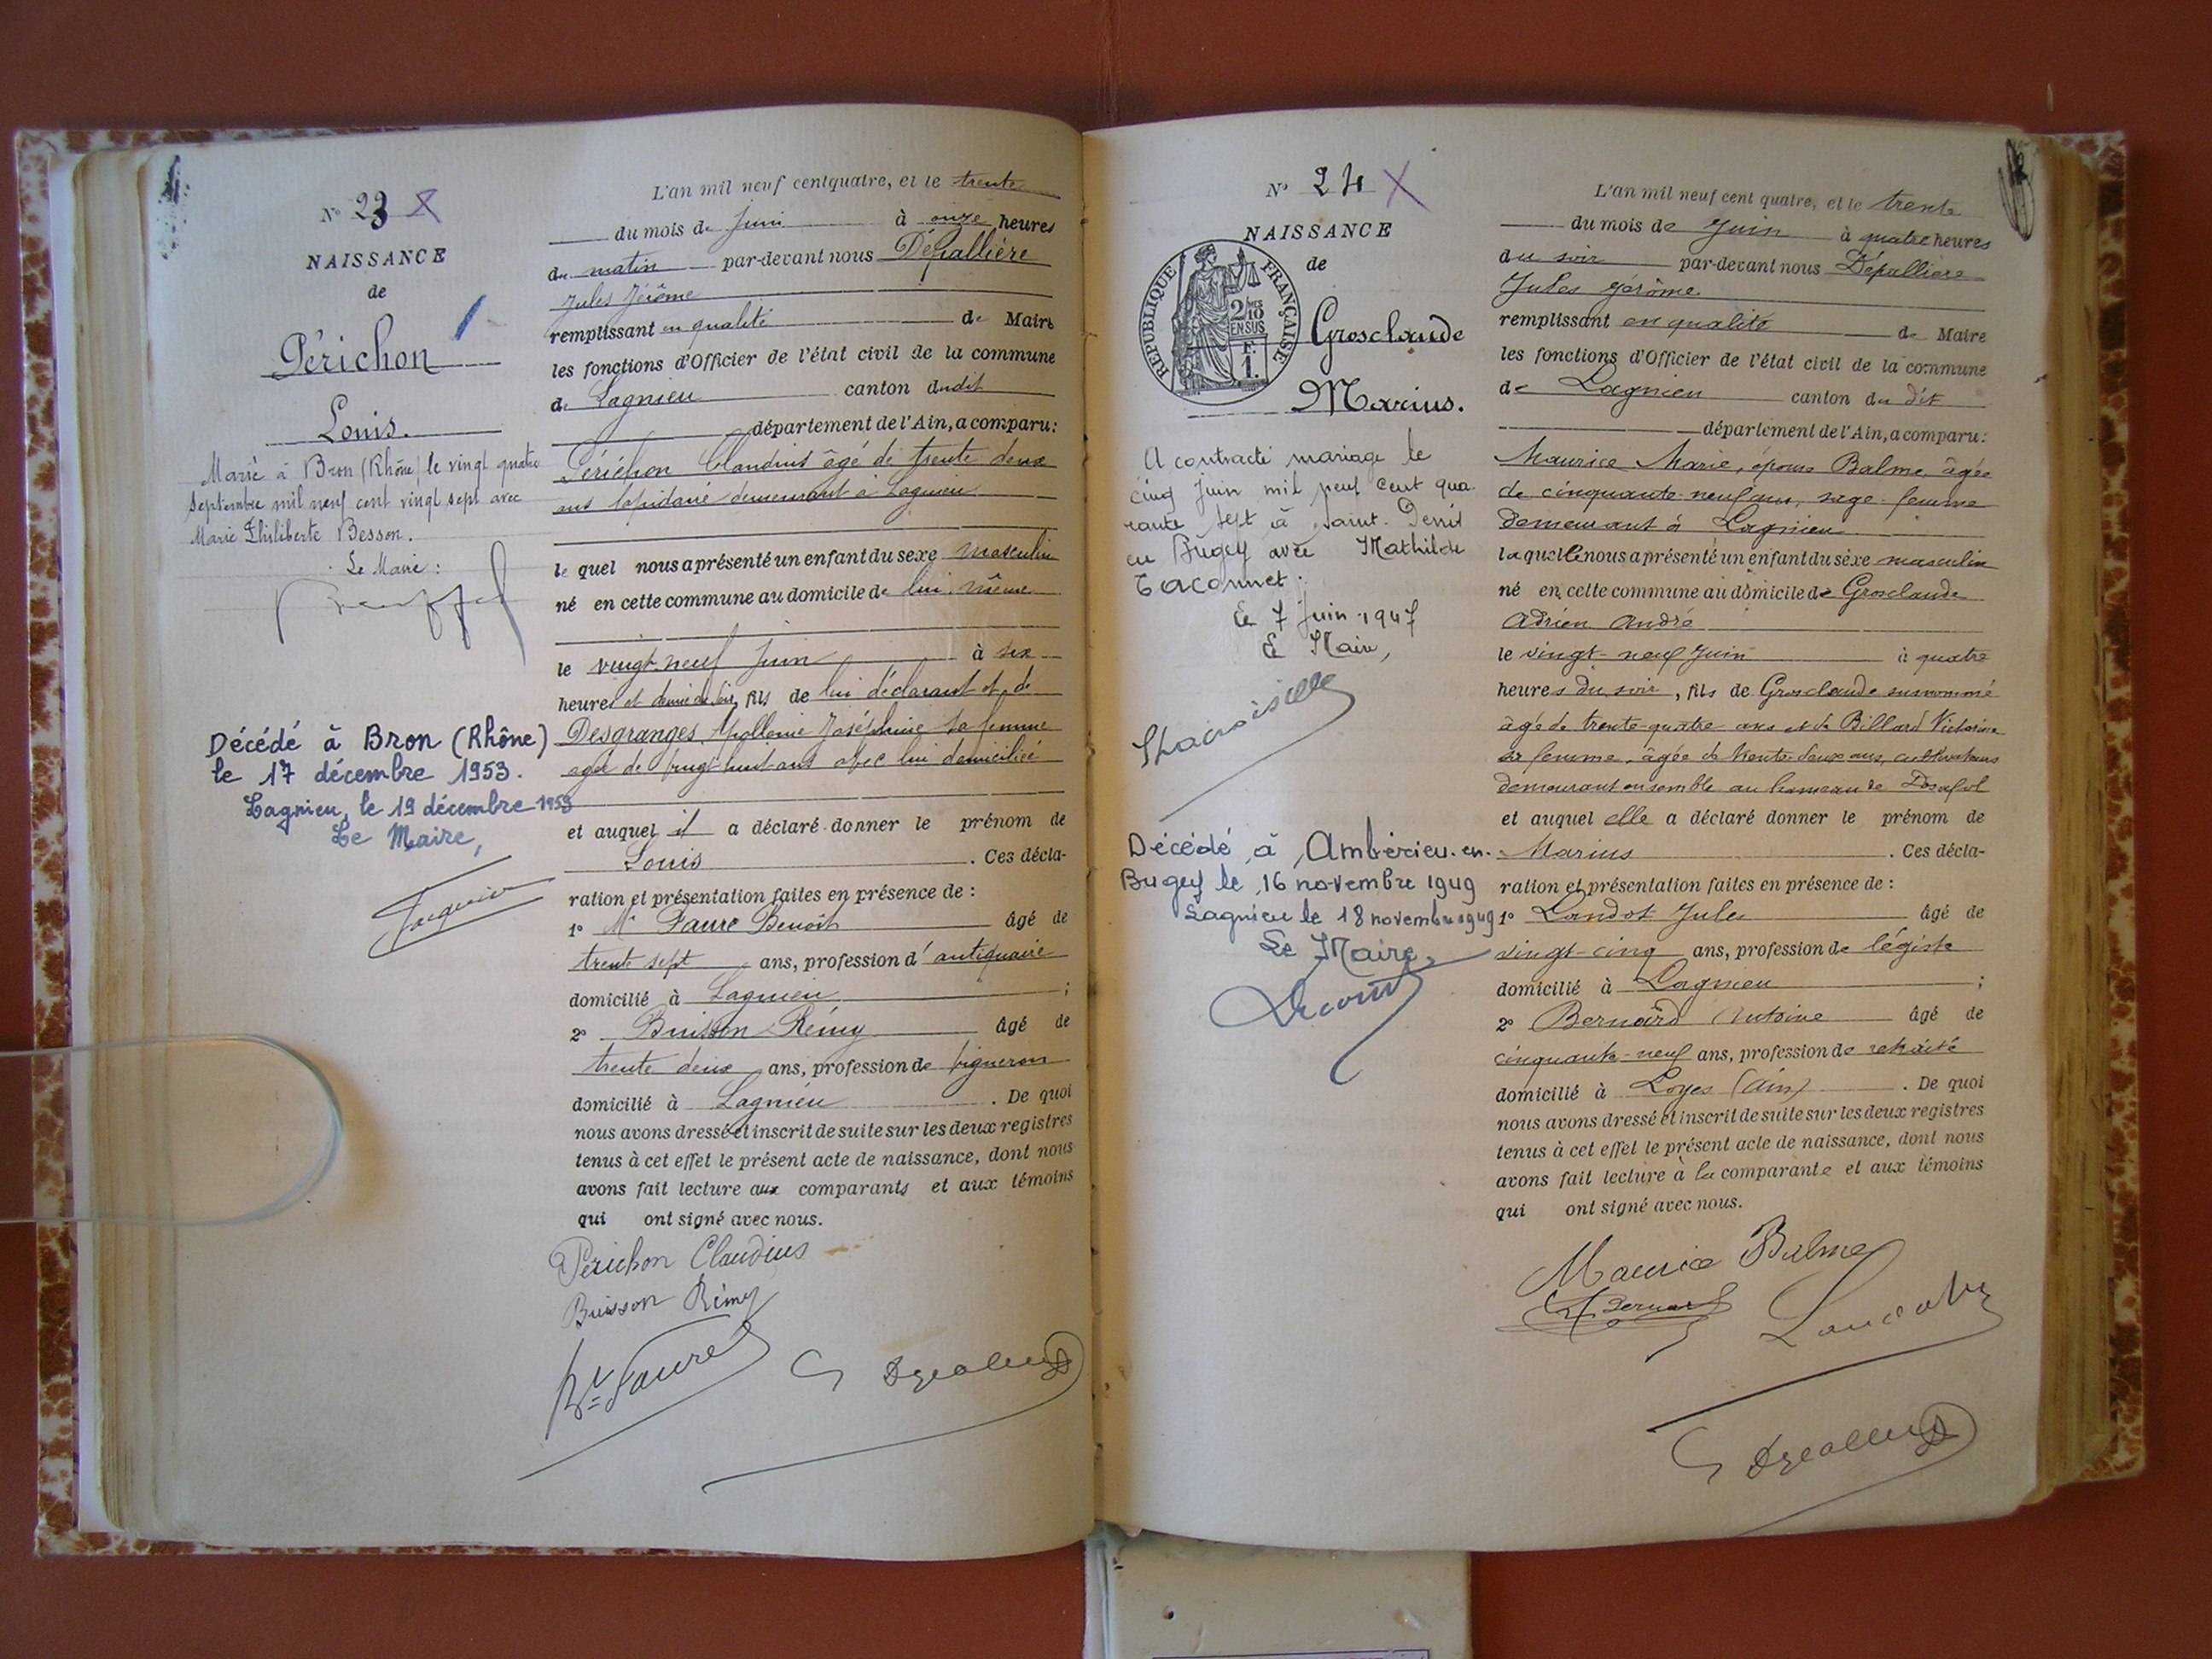 N° 23 X
NAISSANCE
de
Périchon
Louis.
Marié à Bron (Rhône) le vingt quatre
Septembre mil neuf cent vingt sept avec
Marie Philiberte Besson.
Le Maire :
Décédé à Bron (Rhône)
le 17 décembre 1953.
Lagnieu, le 19 décembre 1953
Le Maire,
L'an mil neuf cent quatre, et le trente
du mois de juin à onze heures
du matin par-devant nous Dépallière
Jules Jérôme
remplissant en qualité de Maire
les fonctions d'Officier de l'état civil de la commune
de Lagnieu canton dudit
département de l'Ain, a comparu :
Périchon Claudius âgé de trente deux
ans lapidaire demeurant à Lagnieu
le quel nous a présenté un enfant du sexe masculin
né en cette commune au domicile de lui-même
le vingt-neuf juin à six
heures et demie du soir, fils de lui déclarant et de
Desgranges Apollonie Joséphine sa femme
agée de vingt huit ans avec lui domiciliée
et auquel il a déclaré donner le prénom de
Louis . Ces décla-
ration et présentation faites en présence de :
1° Mr Faure Benoît âgé de
trente sept ans, profession d'antiquaire
domicilié à Lagnieu ;
2° Buisson Rémy âgé de
trente deux ans, profession de vigneron
domicilié à Lagnieu . De quoi
nous avons dressé et inscrit de suite sur les deux registres
tenus à cet effet le présent acte de naissance, dont nous
avons fait lecture aux comparants et aux témoins
qui ont signé avec nous.
Périchon Claudius
Buisson Rémy
Bt Faure
N° 24 X
NAISSANCE
de
RÉPUBLIQUE FRANÇAISE
2/10
EN SUS
F.
1.
Grosclaude
Marius.
A contracté mariage le
cinq Juin mil neuf cent qua-
rante sept à Saint-Denis
en Bugey avec Mathilde
Taconnet.
Le 7 Juin 1947
Le Maire,
Décédé à Ambérieu-en-
Bugey le 16 novembre 1949
Lagnieu le 18 novembre 1949
Le Maire,
L'an mil neuf cent quatre, et le trente
du mois de Juin à quatre heures
du soir par-devant nous Dépallière
Jules Jérôme
remplissant en qualité de Maire
les fonctions d'Officier de l'état civil de la commune
de Lagnieu canton du dit
département de l'Ain, a comparu :
Maurice Marie, épouse Balme, âgée
de cinquante-neuf ans, sage-femme
demeurant à Lagnieu
laquelle nous a présenté un enfant du sexe masculin
né en cette commune au domicile de Grosclaude
Adrien André
le vingt-neuf Juin à quatre
heures du soir, fils de Grosclaude susnommé
âgé de trente-quatre ans et de Billard Victorine
sa femme, âgée de trente-deux ans, cultivateurs
demeurant ensemble au hameau de
et auquel elle a déclaré donner le prénom de
Marius . Ces décla-
ration et présentation faites en présence de :
1° Landot Jules âgé de
vingt-cinq ans, profession de légiste
domicilié à Lagnieu ;
2° Bernard Antoine âgé de
cinquante-neuf ans, profession de retraité
domicilié à Loyes (Ain) . De quoi
nous avons dressé et inscrit de suite sur les deux registres
tenus à cet effet le présent acte de naissance, dont nous
avons fait lecture à la comparante et aux témoins
qui ont signé avec nous.
Maurice Balme
A Bernard